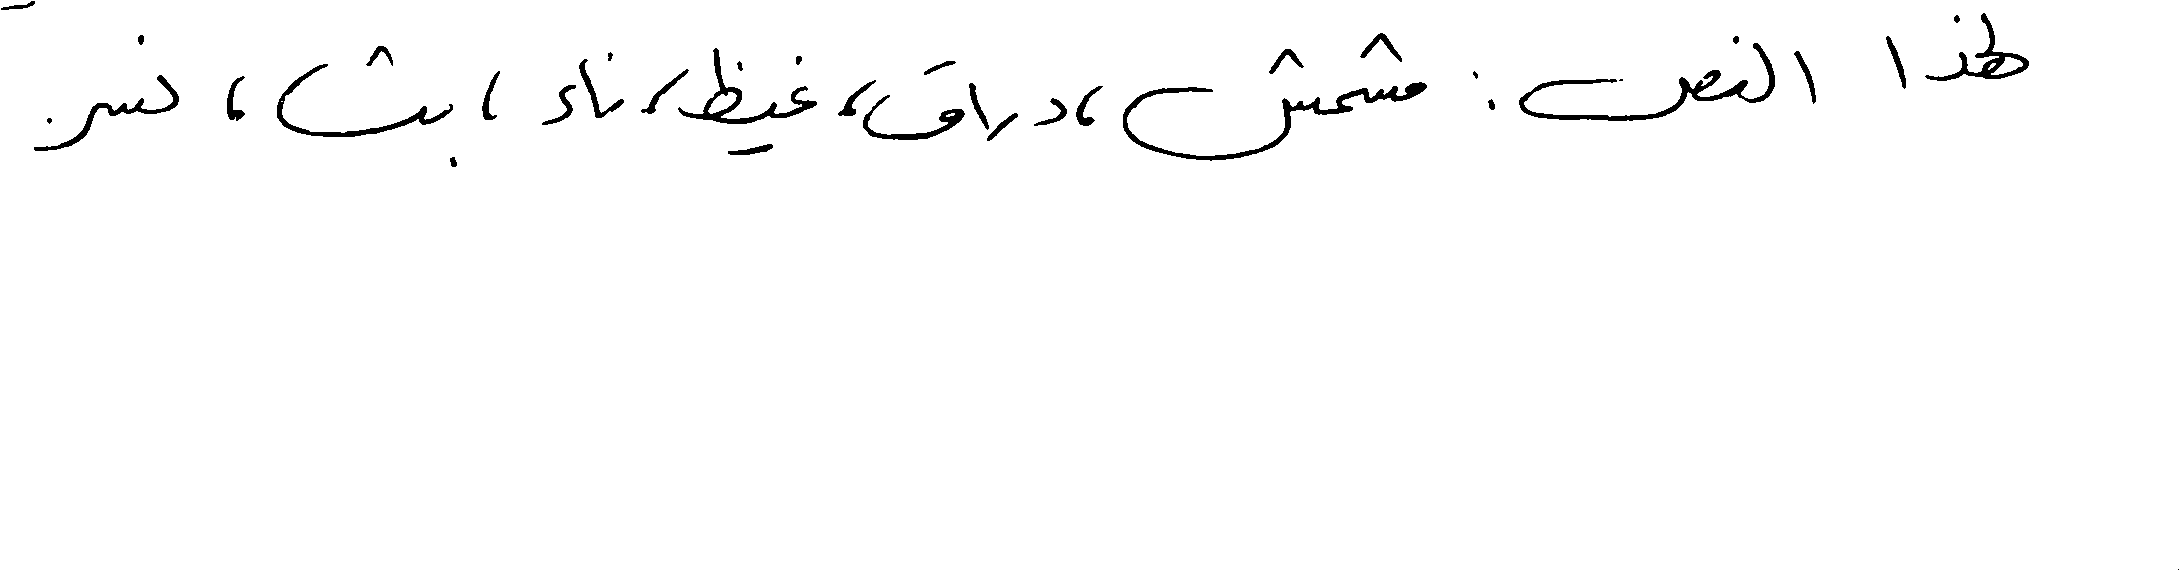 هذا النص: مشمش، دراق، غيظ، بث، نسر.